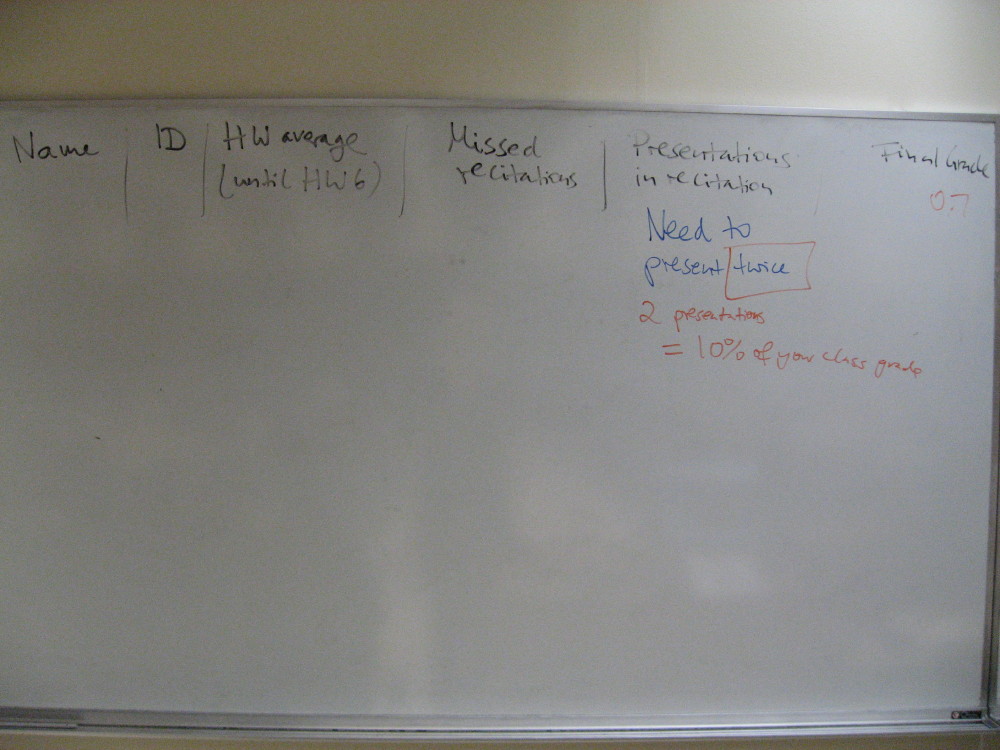 Name | ID | HW average | Missed | Presentations Final Grade
(until HW6) recitations in recitation
0.7
Need to
present twice
2 presentations
= 10% of your class grade